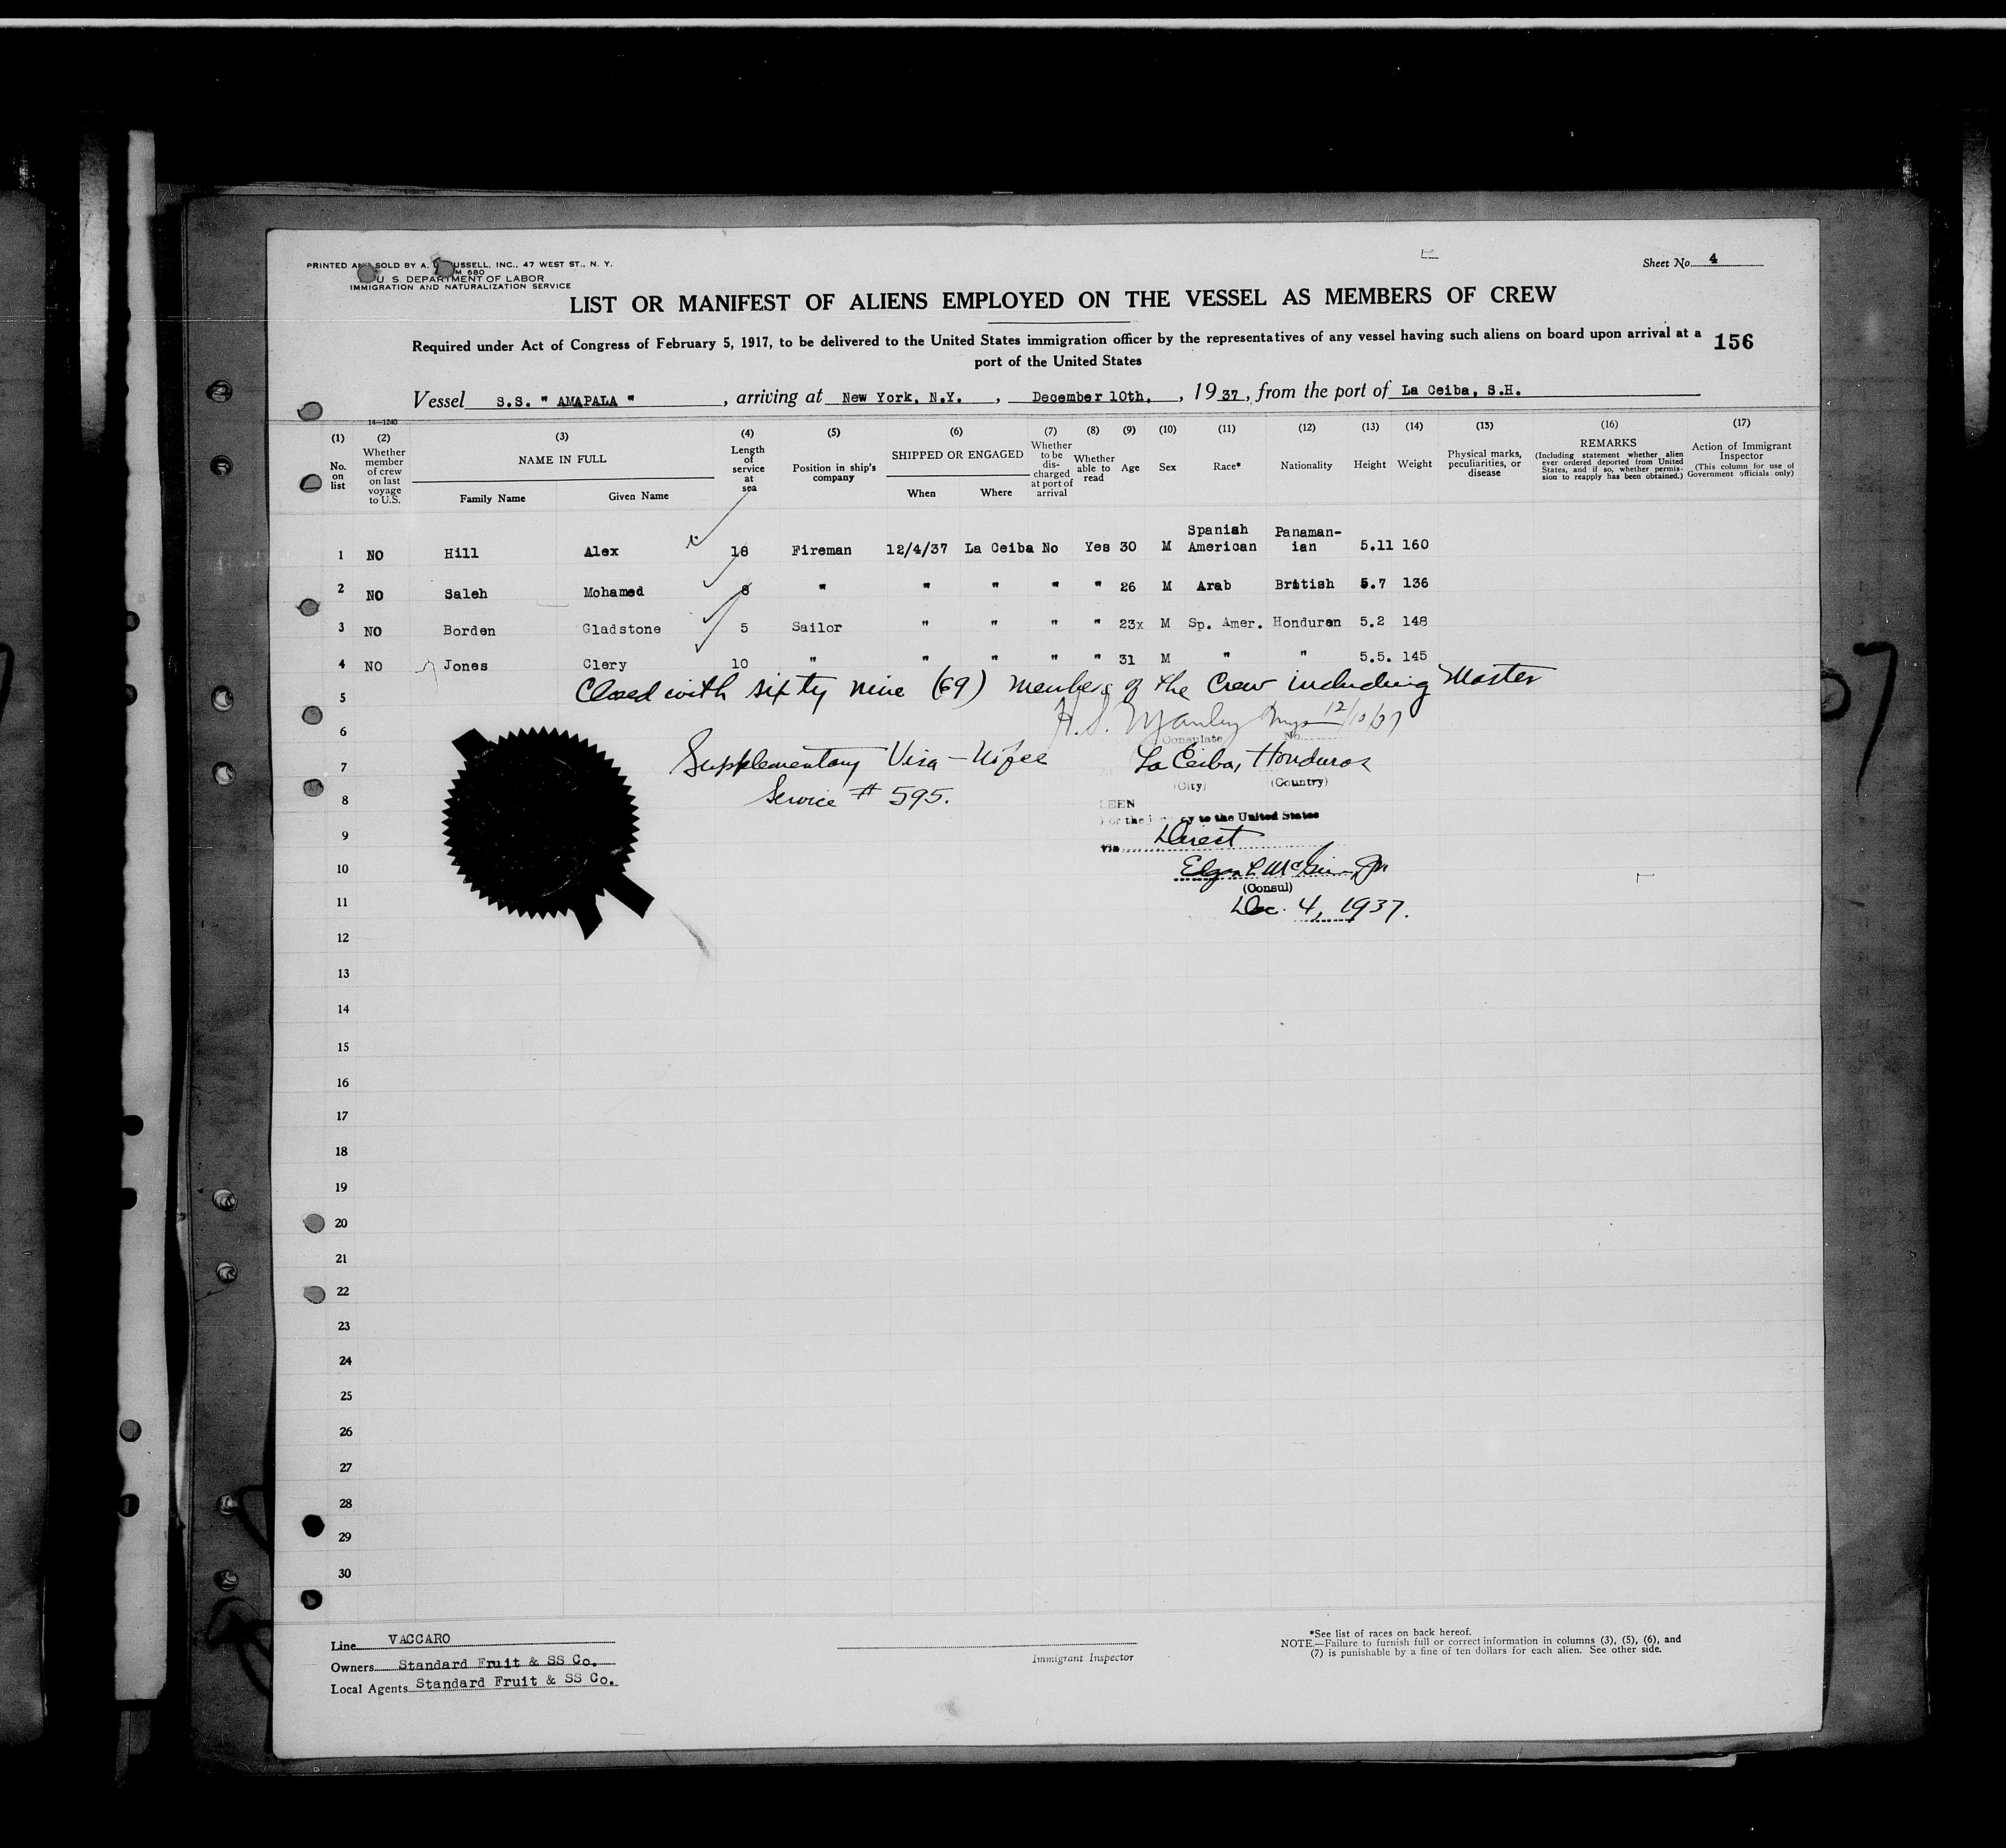 PRINTED AND SOLD BY A. USSELL. INC., 47 WEST ST., N. Y.
M 680
U. S. DEPARTMENT OF LABOR
IMMIGRATION AND NATURALIZATION SERVICE
Sheet No. 4
LIST OR MANIFEST OF ALIENS EMPLOYED ON THE VESSEL AS MEMBERS OF CREW
Required under Act of Congress of February 5, 1917, to be delivered to the United States immigration officer by the representatives of any vessel having such aliens on board upon arrival at a
port of the United States
156
Vessel S.S. " AMAPALA " , arriving at New York, N.Y. , December 10th. , 1937, from the port of La Ceiba, S.H.
14—1240
(1) (2) (3) (4) (5) (6) (7) (8) (9) (10) (11) (12) (13) (14) (15) (16) (17)
No. on list
Whether member of crew on last voyage to U.S.
NAME IN FULL
Family Name Given Name
Length of service at sea
Position in ship's company
SHIPPED OR ENGAGED
When Where
Whether to be discharged at port of arrival
Whether able to read
Age
Sex
Race*
Nationality
Height
Weight
Physical marks, peculiarities, or disease
REMARKS
(Including statement whether alien ever ordered deported from United States, and if so, whether permission to reapply has been obtained.)
Action of Immigrant Inspector
(This column for use of Government officials only)
1 NO Hill Alex 18 Fireman 12/4/37 La Ceiba No Yes 30 M Spanish American Panamanian 5.11 160
2 NO Saleh Mohamed 8 " " " " " 26 M Arab British 5.7 136
3 NO Borden Gladstone 5 Sailor " " " " 23x M Sp. Amer. Honduran 5.2 148
4 NO Jones Clery 10 " " " " " 31 M " " 5.5. 145
5 Closed with sixty nine (69) members of the Crew including Master
6 H. S. Manley 12/10/37
Consulate No.
7 Supplementary Visa - No fee La Ceiba, Honduras
(City) (Country)
8 Service # 595.
EEN
or the to the United States
9 Via Direct
10
(Consul)
11 Dec. 4, 1937.
12
13
14
15
16
17
18
19
20
21
22
23
24
25
26
27
28
29
30
Line VACCARO
Owners Standard Fruit & SS Co.
Local Agents Standard Fruit & SS Co.
Immigrant Inspector
*See list of races on back hereof.
NOTE.—Failure to furnish full or correct information in columns (3), (5), (6), and
(7) is punishable by a fine of ten dollars for each alien. See other side.